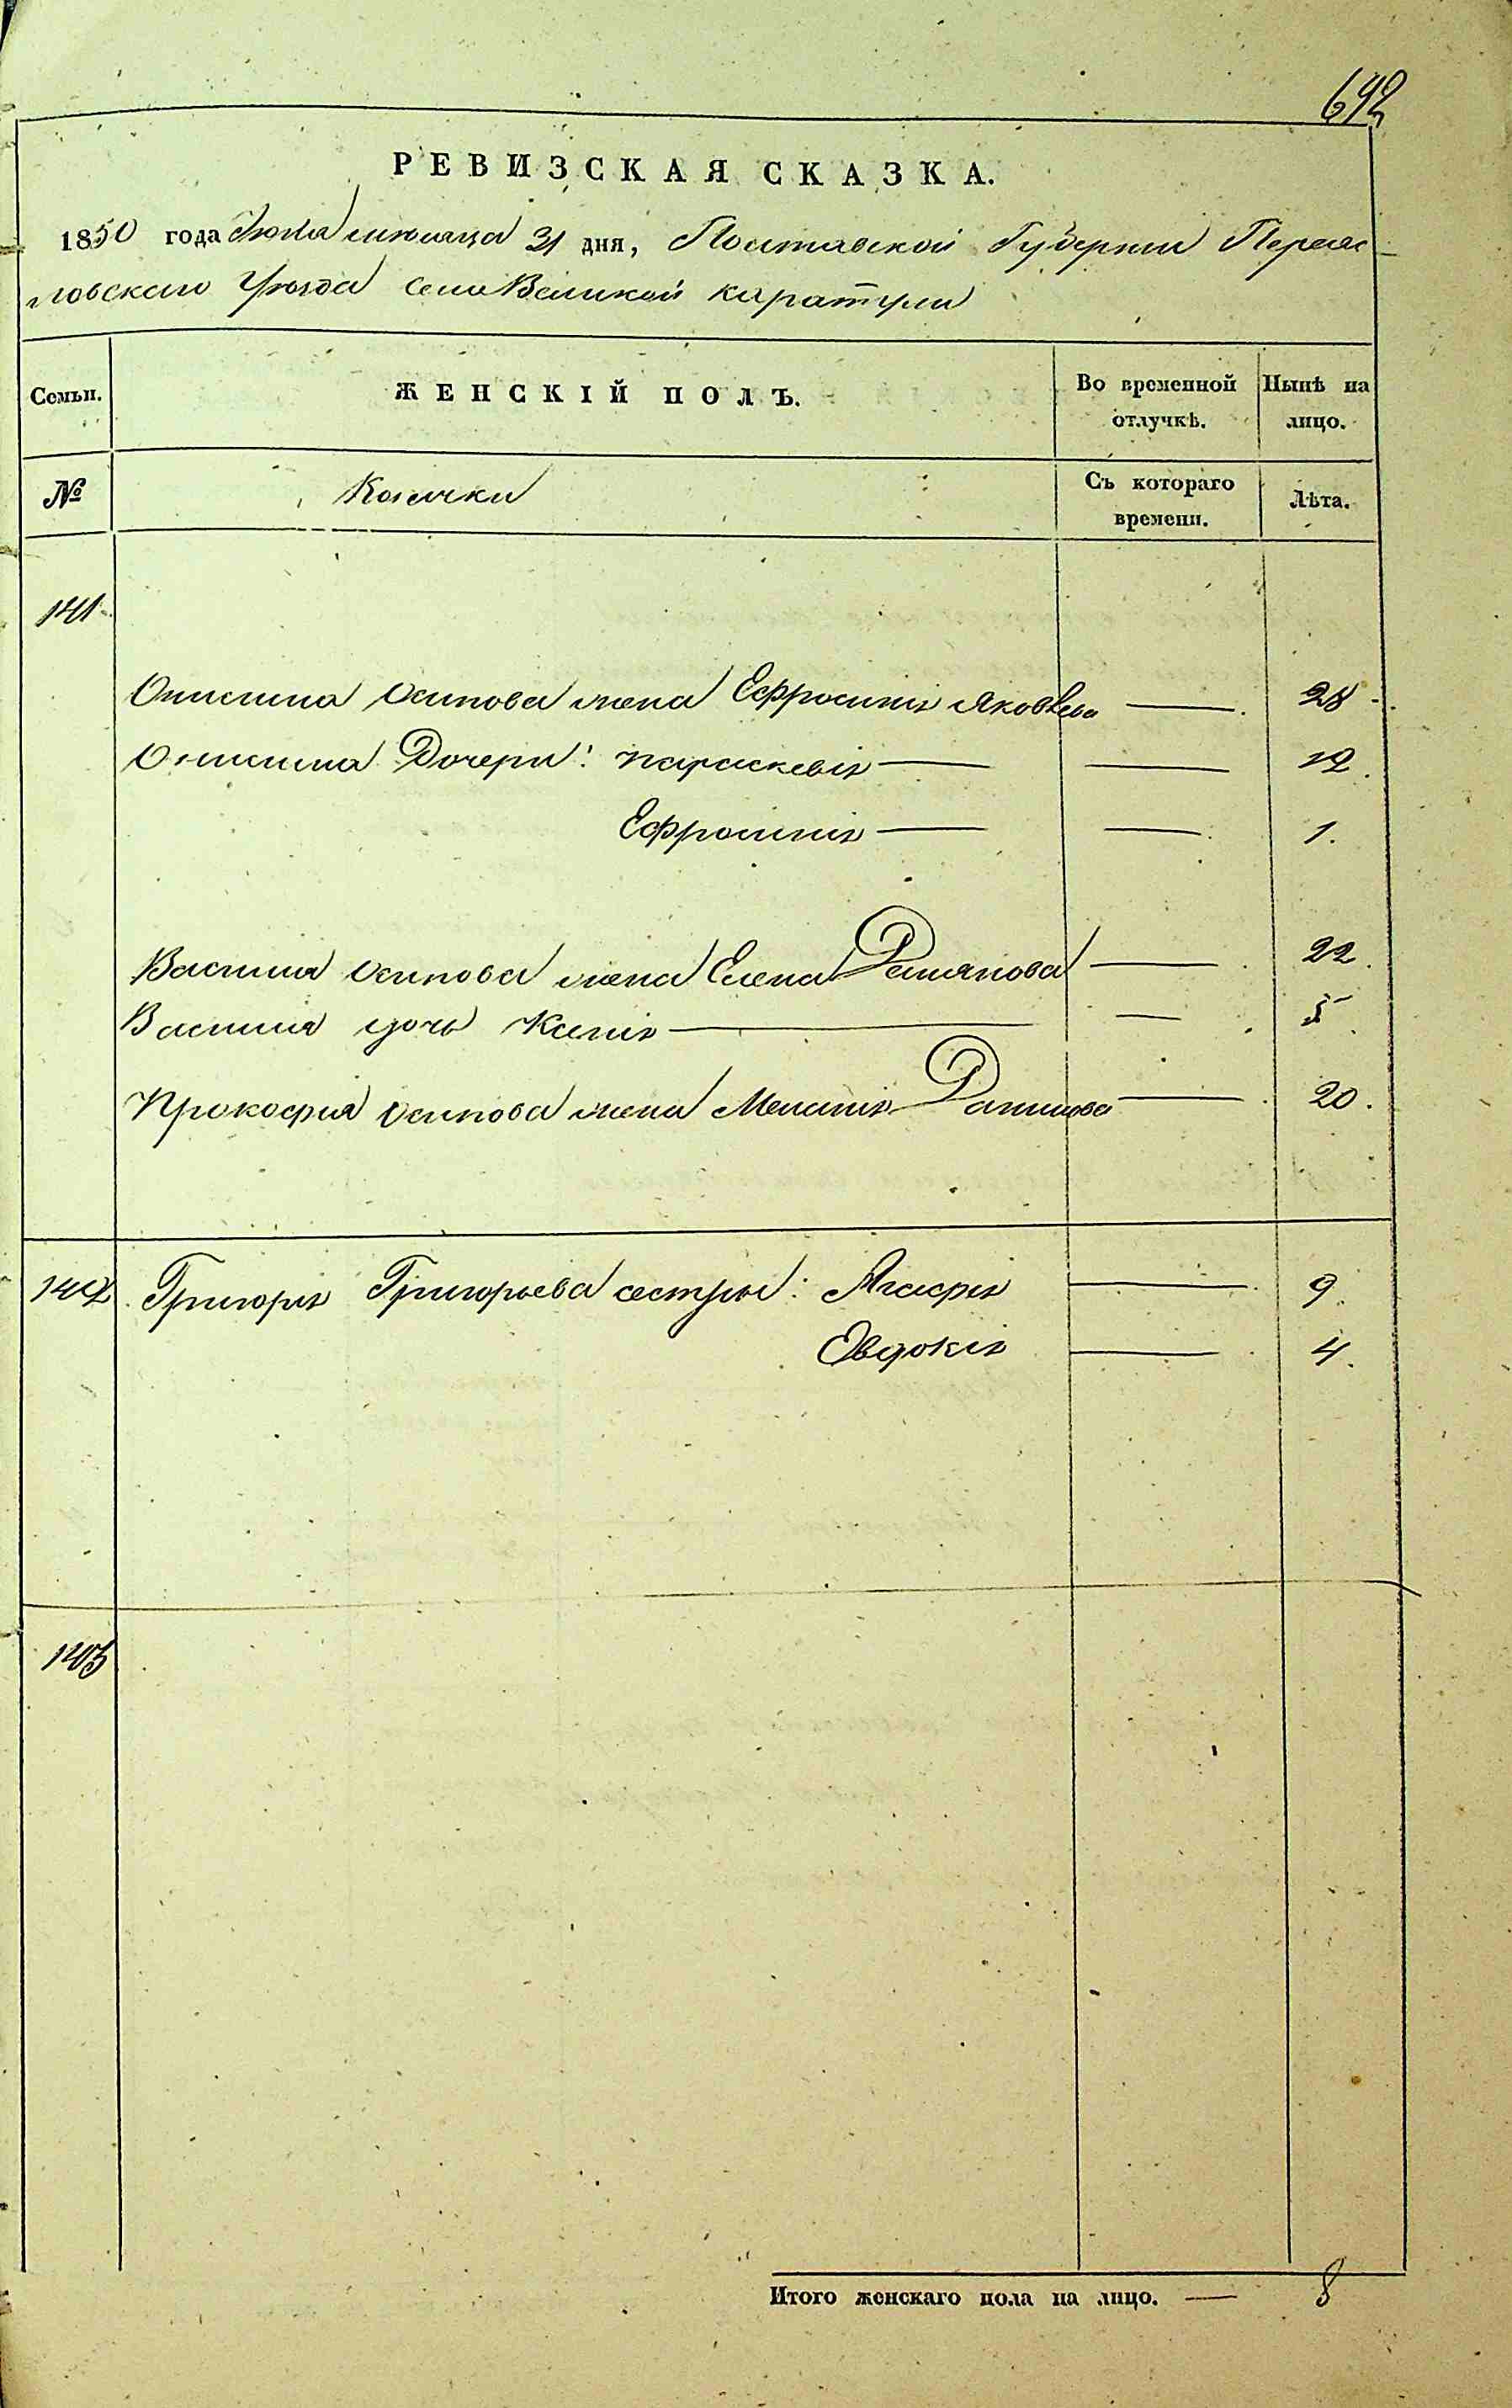 642
РЕВИЗСКАЯ СКАЗКА.
1850 года Июля мѣсяца 31 дня, Полтавской Губернии Переяс-
ловскаго Уѣзда села Великой каратули
Семьи. ЖЕНСКІЙ ПОЛЪ. Во временной отлучкѣ. Нынѣ на лицо.
№ Козачки Съ котораго времени. Лѣта.
141
Онисима Осипова жена Ефросинія Яковлева — 28
Онисима Дочери: параскевія — — 12.
Ефросинія — — 1.
Василия Осипова жена Елена Демянова — 22.
Василия дочь Ксенія — — 5.
Прокофия Осипова жена Меланія Данилова — 20.
142 Григорія Григорьева сестры: Агафія — 9.
Овдокія — 4.
143
Итого женскаго пола на лицо. — 8